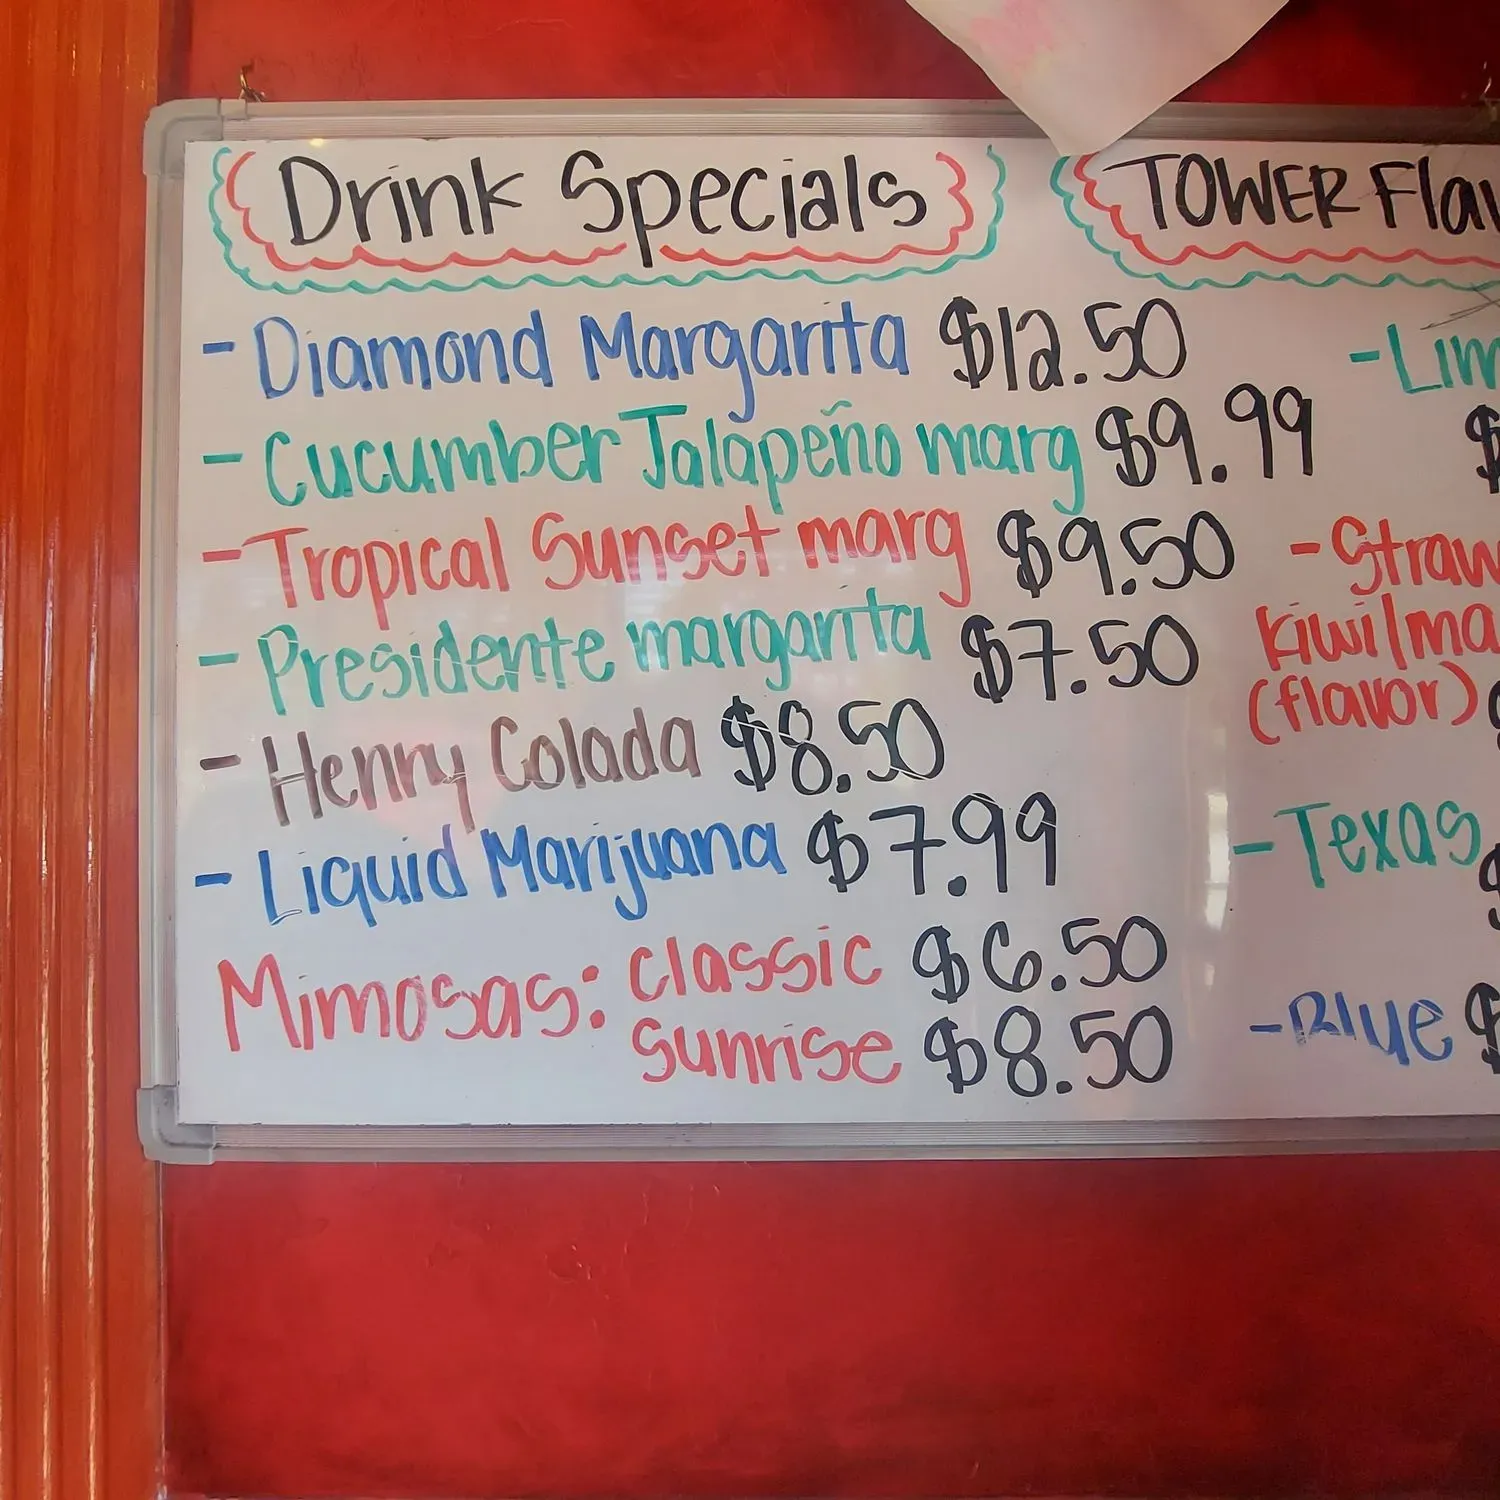 Drink Specials
- Diamond Margarita $12.50
- Cucumber Jalapeño marg $9.99
- Tropical Sunset marg $9.50
- Presidente margarita $7.50
- Henny Colada $8.50
- Liquid Marijuana $7.99
Mimosas: classic $6.50
sunrise $8.50
TOWER Flav
- Lim
$
- Straw
kiwi/ma
(flavor)
- Texas
$
- Blue $